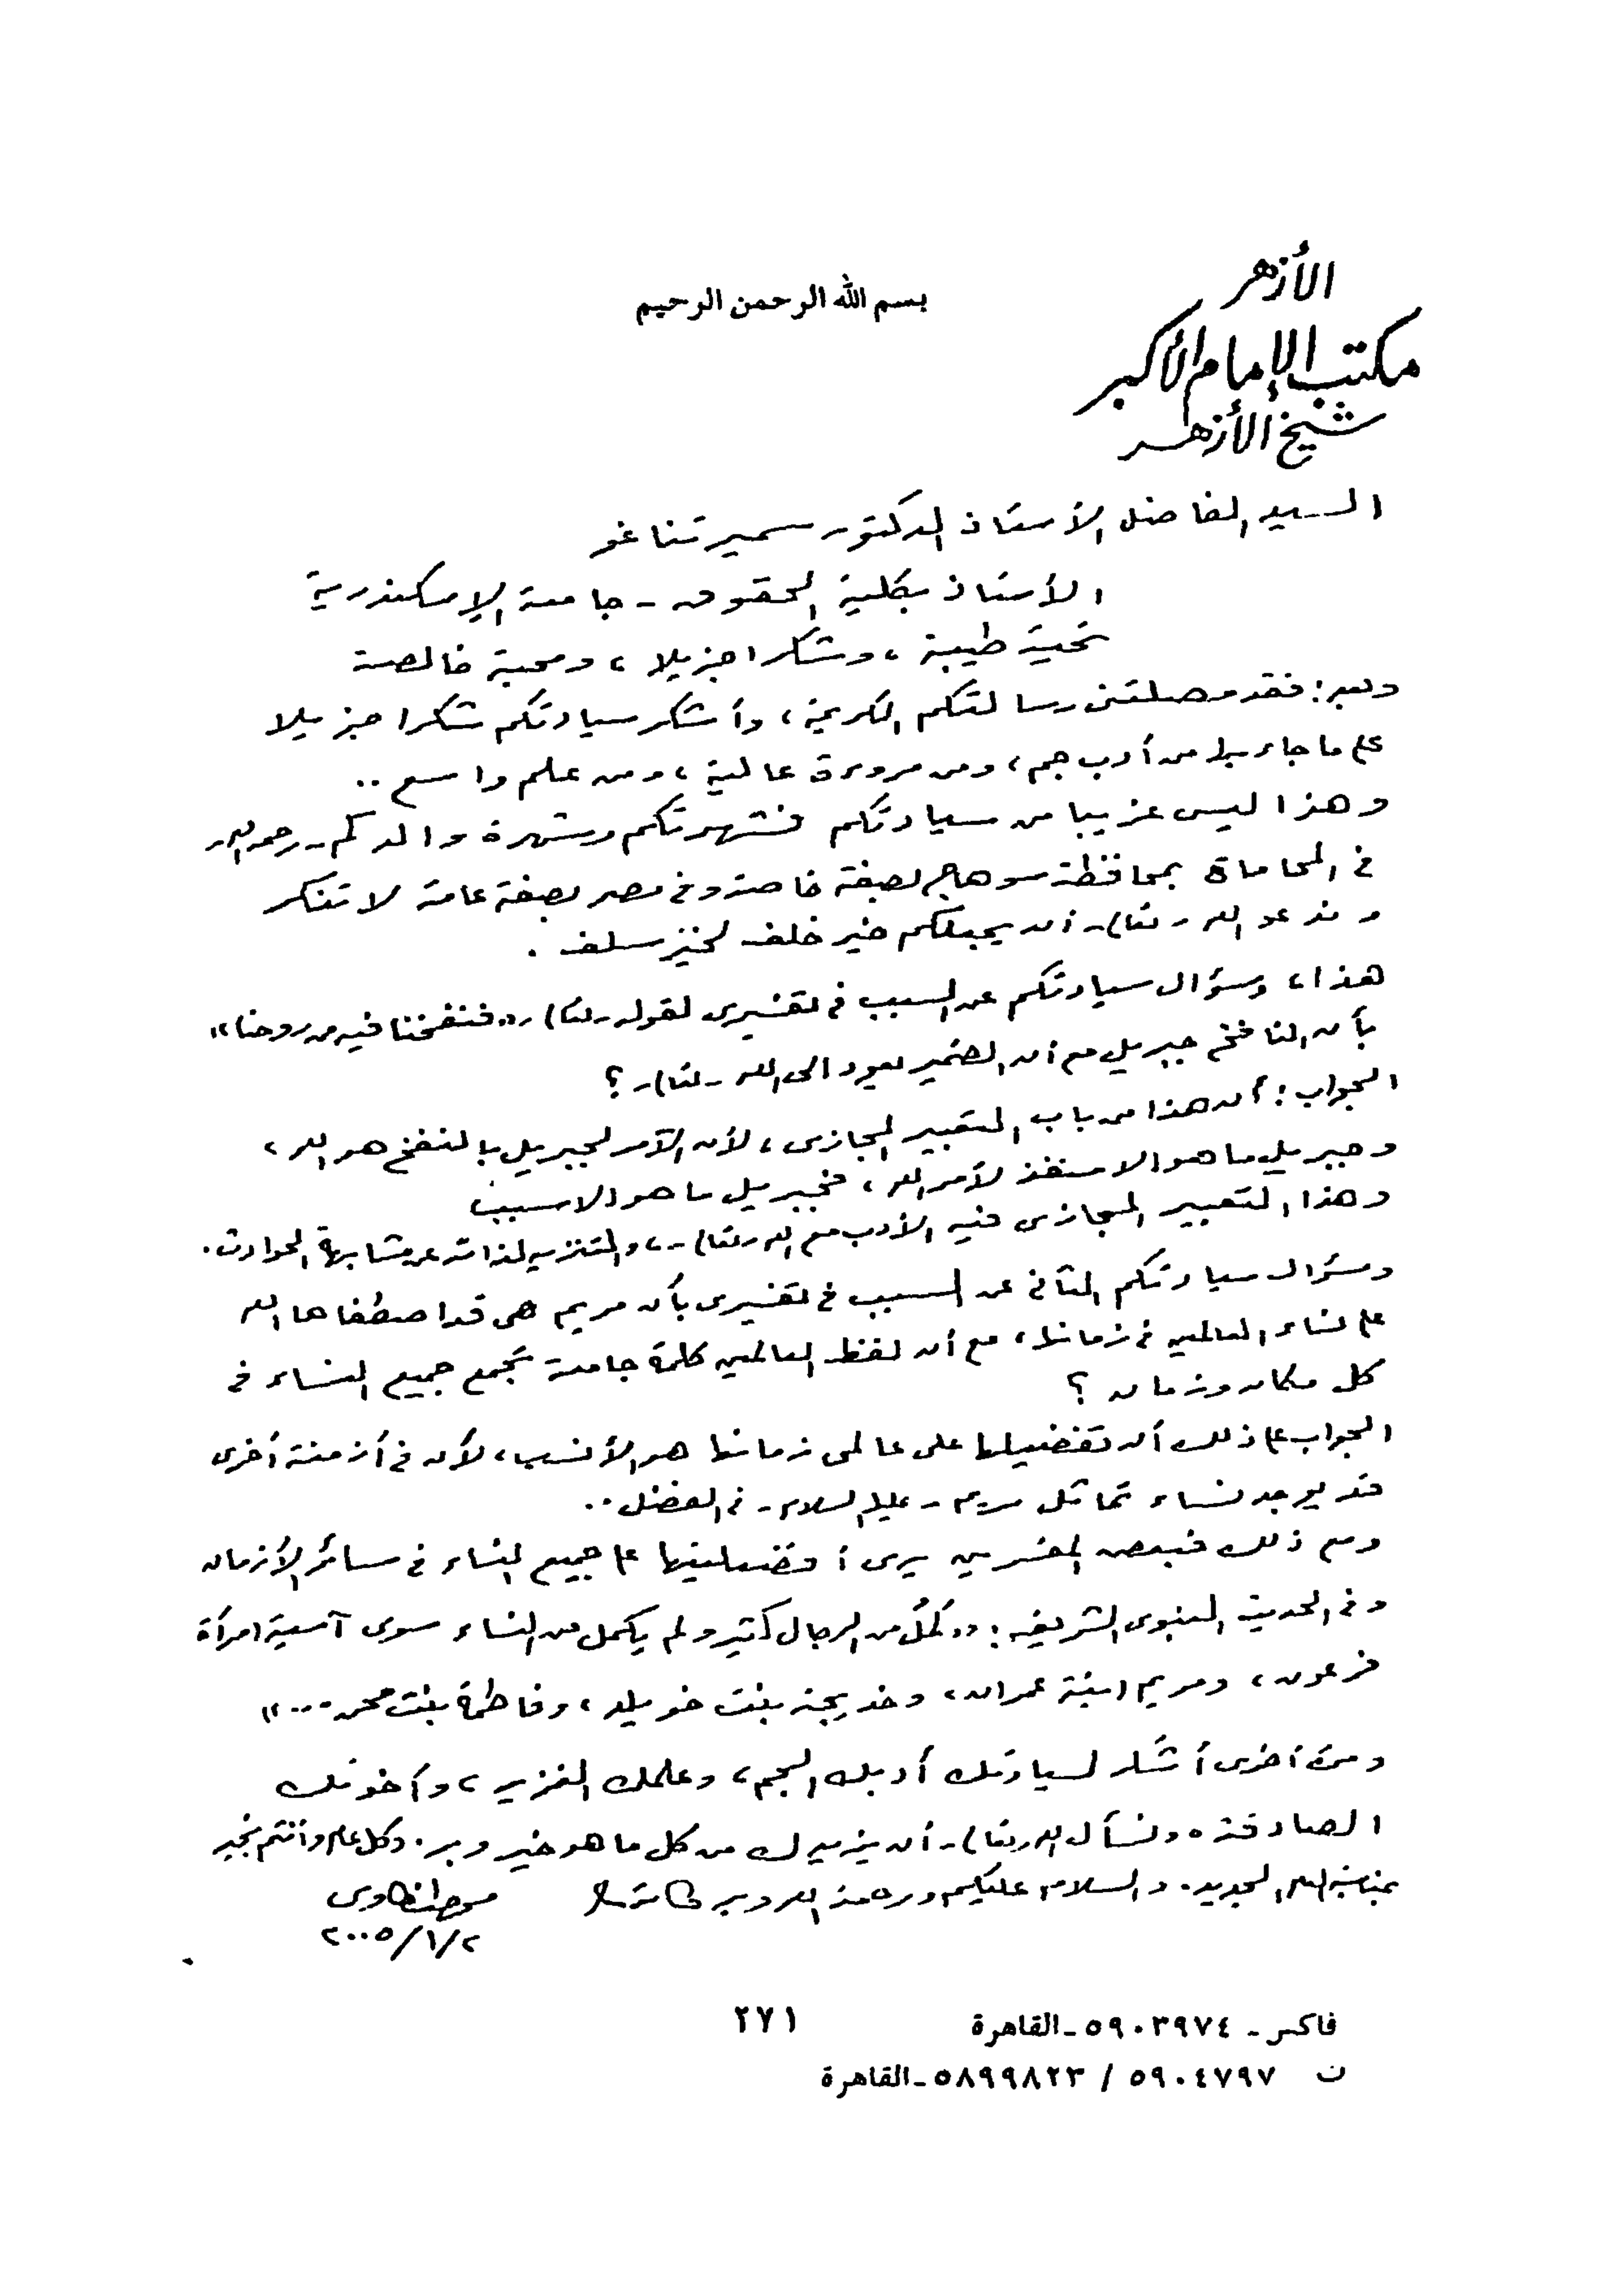 الأزهر
بسم الله الرحمن الرحيم
مكتب الإمام الأكبر
شيخ الأزهر
السيد الفاضل الأستاذ الدكتور سمير تناغو
الأستاذ بكلية الحقوق - جامعة الإسكندرية
تحية طيبة ، وشكرا جزيلا ، ومحبة خالصة
وبعد : فقد وصلتنى رسالتكم الكريمة ، وأشكر سيادتكم شكرا جزيلا
على ما جاء بها من أدب جم ، ومن مروءة عالية ، ومن علم واسع ..
وهذا ليس غريبا من سيادتكم فشهرتكم وشهرة والدكم - رحمه الله -
فى المحاماة بمحافظة سوهاج بصفة خاصة وفى مصر بصفة عامة لا تنكر
وندعو الله - تعالى - أن يجعلكم خير خلف لخير سلف .
هذا ، وسؤال سيادتكم عن السبب فى تفسيرى لقوله - تعالى - « فنفخنا فيه من روحنا »
بأن النافخ جبريل مع أن الضمير يعود الى الله - تعالى - ؟
الجواب : أن هذا من باب التعبير المجازى ، لأن الآمر لجبريل بالنفخ هو الله ،
وجبريل ما هو الا منفذ لأمر الله ، فجبريل ما هو الا سبب
وهذا التعبير المجازى فيه الأدب مع الله - تعالى - ، والتنزيه لذاته عن مشابهة الحوادث .
وسؤال سيادتكم الثانى عن السبب فى تفسيرى بأن مريم هى قد اصطفاها الله
على نساء العالمين فى زمانها ، مع أن لفظ العالمين كلمة جامعة تجمع جميع النساء فى
كل مكان وزمان ؟
الجواب على ذلك أن تفضيلها على عالمى زمانها هو الأنسب ، لأن فى أزمنة أخرى
قد يوجد نساء تماثل مريم - عليها السلام - فى الفضل ..
ومع ذلك فبعض المفسرين يرى أفضليتها على جميع النساء فى سائر الأزمان
وفى الحديث النبوى الشريف : « كمُل من الرجال كثير ولم يكمل من النساء سوى آسية امرأة
فرعون ، ومريم ابنة عمران ، وخديجة بنت خويلد ، وفاطمة بنت محمد ... »
ومرة أخرى أشكر لسيادتك أدبك الجم ، وعلمك الغزير ، وأخوتك
الصادقة ، ونسأل الله - تعالى - أن يزيدك من كل ما هو خير وبر . وكل عام وأنتم بخير
بمناسبة العام الجديد . والسلام عليكم ورحمة الله وبركاته
طنطاوى
٢/١/٢٠٠٥
فاكس - ٥٩٠٣٩٧٤ - القاهرة
٢٧١
ت ٥٩٠٤٧٩٧ / ٥٨٩٩٨٢٣ - القاهرة